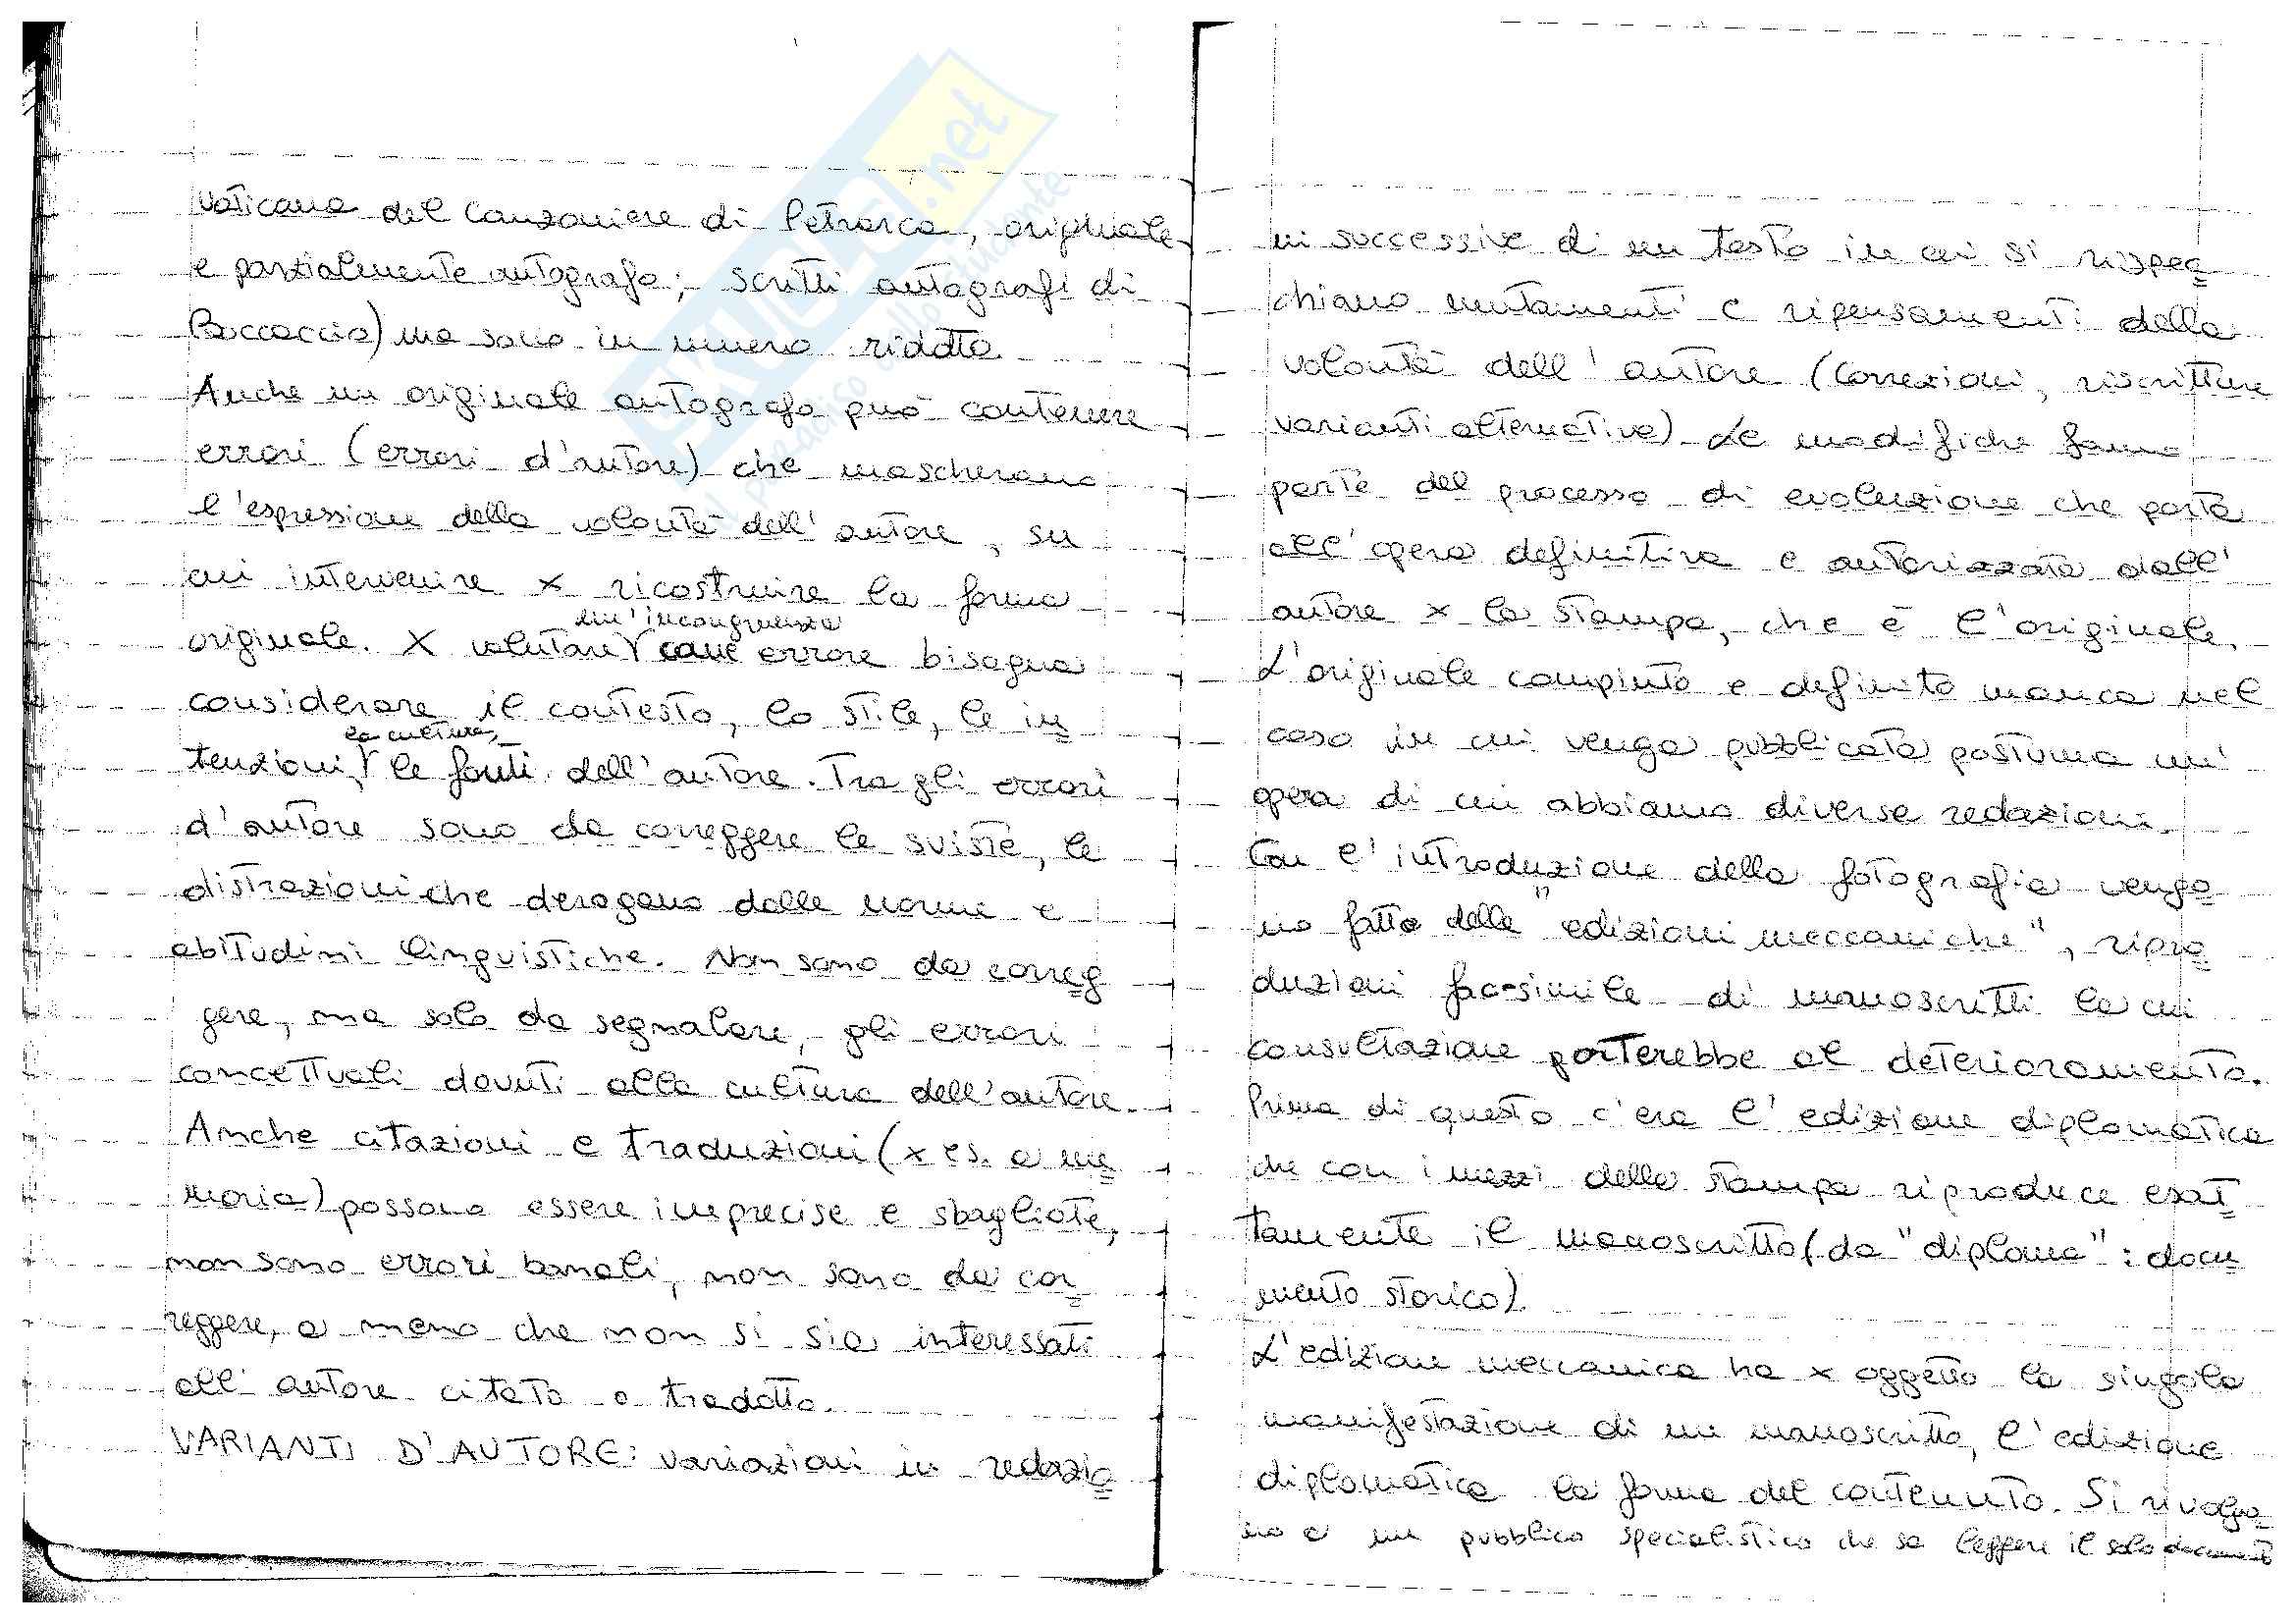 vaticano del Canzoniere di Petrarca, originale
e parzialmente autografo; scritti autografi di
Boccaccio) ma sono in numero ridotto.
Anche un originale autografo può contenere
errori (errori d'autore) che mascherano
l'espressione della volontà dell'autore, su
cui intervenire x ricostruire la forma
un'incongruenza
originale. X valutare come errore bisogna
considerare il contesto, lo stile, le in
la cultura,
tenzioni, le fonti dell'autore. Tra gli errori
d'autore sono da correggere le sviste, le
distrazioni che derogano dalle norme e
abitudini linguistiche. Non sono da correg
gere, ma solo da segnalare, gli errori
concettuali dovuti alla cultura dell'autore.
Anche citazioni e traduzioni (x es. a me
moria) possono essere imprecise e sbagliate,
non sono errori banali, non sono da cor
reggere, a meno che non si sia interessati
all'autore citato o tradotto.
VARIANTI D'AUTORE: variazioni in redazio
ni successive di un testo in cui si rispec
chiano mutamenti e ripensamenti della
volontà dell'autore (correzioni, riscritture
varianti alternative). Le modifiche fanno
parte del processo di evoluzione che porta
all'opera definitiva e autorizzata dall'
autore x la stampa, che è l'originale.
L'originale compiuto e definito manca nel
caso in cui venga pubblicata postuma un'
opera di cui abbiamo diverse redazioni.
Con l'introduzione della fotografia vengo
no fatte delle "edizioni meccaniche", ripro
duzioni fac-simile di manoscritti la cui
consultazione porterebbe al deterioramento.
Prima di questo c'era l'edizione diplomatica
che con i mezzi della stampa riproduce esat
tamente il manoscritto (da "diploma": docu
mento storico).
L'edizione meccanica ha x oggetto la singola
manifestazione di un manoscritto, l'edizione
diplomatica la forma del contenuto. Si rivolgo
no a un pubblico specialistico che sa leggere il solo documento
.net